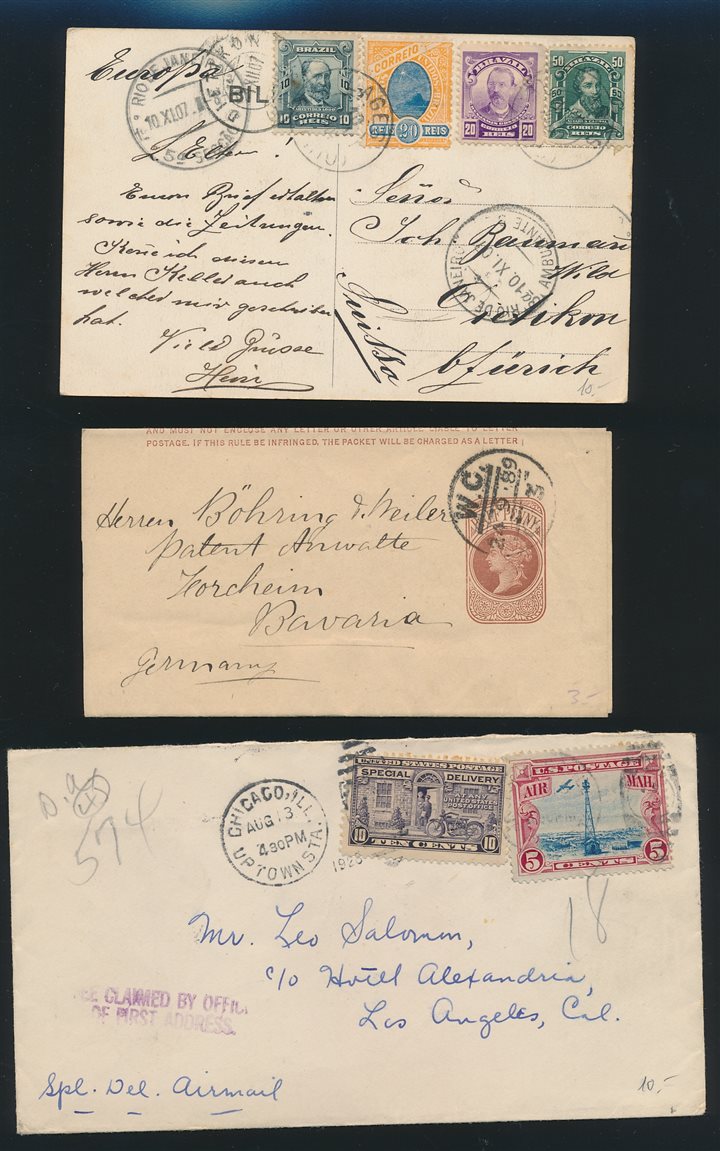 Europa
RIO DE JANEIRO
10.XI.07
5ª SECÇÃO
BRAZIL
10 10
10 CORREIO 10
REIS
CORREIO
REIS 20 REIS
BRAZIL
20 20
REIS
50 BRAZIL 50
CORREIO
REIS
L. !
Euern Brief erhalten
sowie die Zeitungen.
Herrn Keller auch
welcher mir geschrieben
hat.
Viele Grüsse
Hein
Señor
Joh. Bauman
Wild
Oerlikon
b/Zürich
Suissa
AMBULANTE
10 XI 07
RIO DE JANEIRO
10.-
AND MUST NOT ENCLOSE ANY LETTER OR OTHER ARTICLE LIABLE TO LETTER
POSTAGE. IF THIS RULE BE INFRINGED, THE PACKET WILL BE CHARGED AS A LETTER
W.C.
89
Herren Böhring & Weiler
Patent Anwalte
Forcheim
Bavaria
Germany
3-
574
CHICAGO, ILL.
AUG 13
430PM
UPTOWN STA.
1928
UNITED STATES POSTAGE
SPECIAL DELIVERY
AT ANY
UNITED STATES
POST OFFICE
10 TEN CENTS 10
U.S. POSTAGE
AIR MAIL
5 CENTS 5
18
Mr. Leo Salomon,
c/o Hotel Alexandria,
Los Angeles, Cal.
EE CLAIMED BY OFFIC
OF FIRST ADDRESS.
Spl. Del. Airmail
10.-